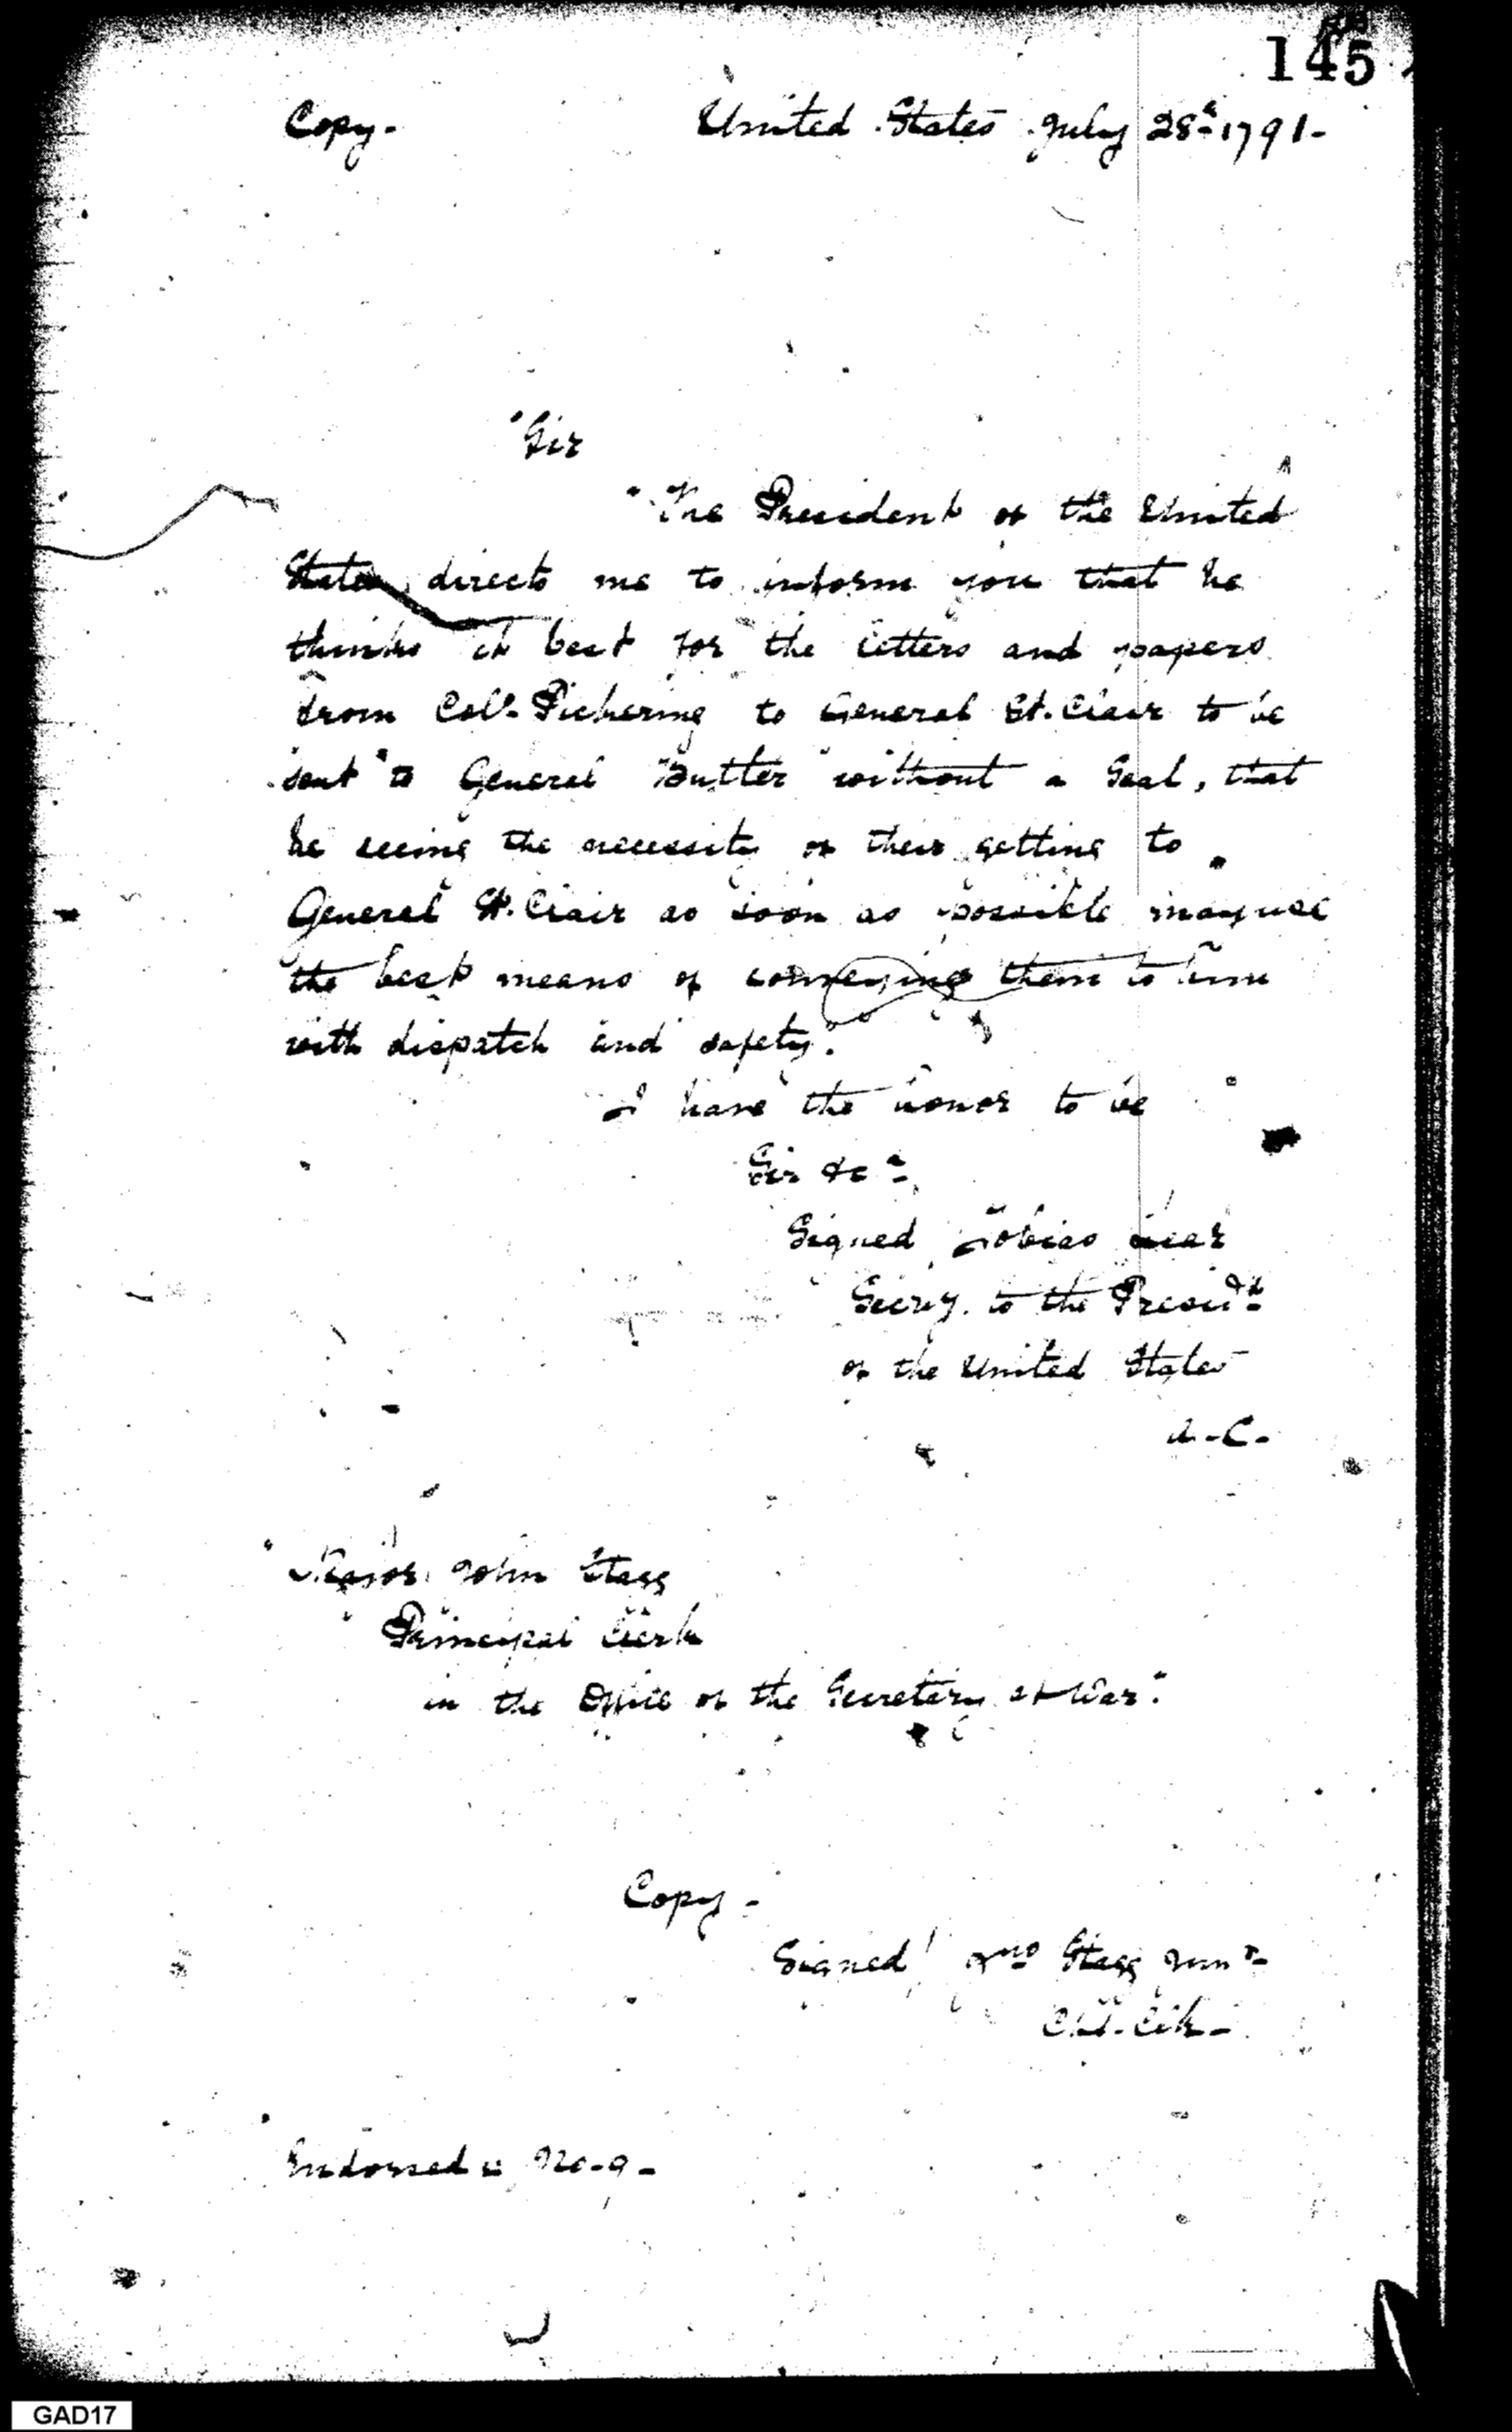 145
Copy- United States July 28th 1791-
"Sir
"The President of the United
States directs me to inform you that he
thinks it best for the letters and papers
from Coll. Pickering to General St. Clair to be
sent to General Butler without a Seal, that
he seeing the necessity of their getting to
General St. Clair as soon as possible may use
the best means of conveying them to him
with dispatch and safety."
I have the honor to be
Sir &ca
Signed Tobias Lear
Secry. to the Presidt
of the United States
"Major John Stagg
Principal Clerk
in the Office of the Secretary at War."
Copy-
Signed Jno Stagg Junr
Endorsed No-9-
GAD17